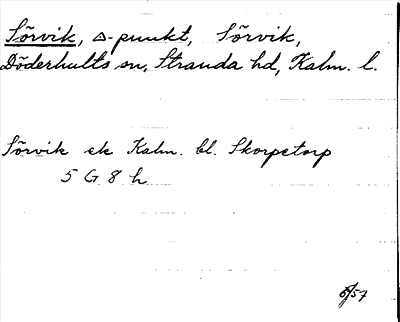 Sörvik, △-punkt, Sörvik,
Döderhults sn, Stranda hd, Kalm. l.
Sörvik ek Kalm. bl. Skorpetorp
5 G 8 h
6/57